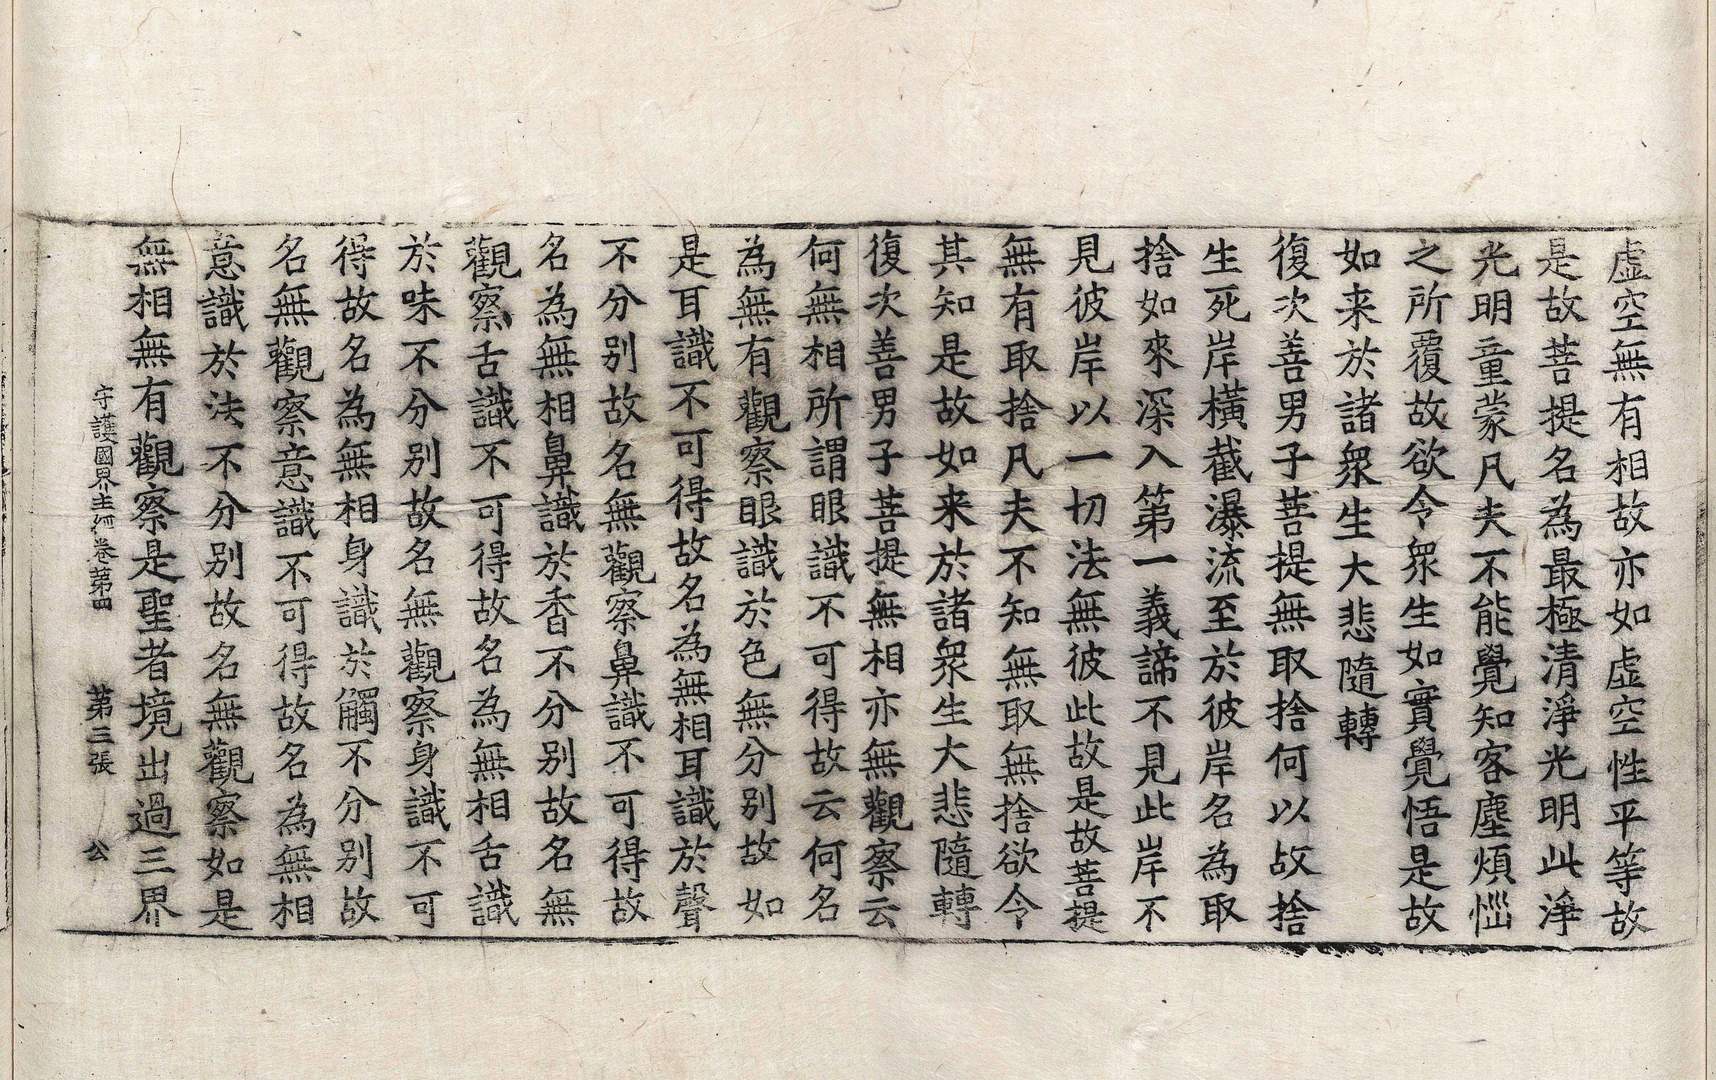 虛空無有相故亦如虛空性平等故
是故菩提名為最極清淨光明此淨
光明童蒙凡夫不能覺知客塵煩惱
之所覆故欲令眾生如實覺悟是故
如来於諸眾生大悲隨轉
復次善男子菩提無取捨何以故捨
生死岸橫截瀑流至於彼岸名為取
捨如來深入第一義諦不見此岸不
見彼岸以一切法無彼此故是故菩提
無有取捨凡夫不知無取無捨欲令
其知是故如来於諸眾生大悲隨轉
復次善男子菩提無相亦無觀察云
何無相所謂眼識不可得故云何名
為無有觀察眼識於色無分別故如
是耳識不可得故名為無相耳識於聲
不分別故名無觀察鼻識不可得故
名為無相鼻識於香不分別故名無
觀察舌識不可得故名為無相舌識
於味不分別故名無觀察身識不可
得故名為無相身識於觸不分別故
名無觀察意識不可得故名為無相
意識於法不分別故名無觀察如是
無相無有觀察是聖者境出過三界
守護國界主經卷第四 第三張 公